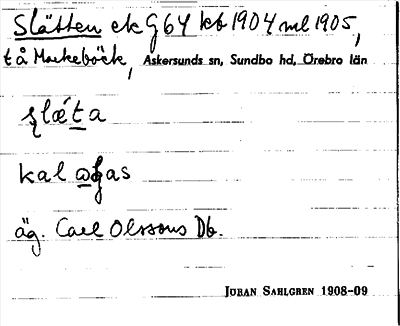 Slätten ek G 64 kb 1904 ml 1905,
t å Markebäck, Askersunds sn, Sundbo hd, Örebro län
slǽta
kal
äg. Carl Olssons Db.
JÖRAN SAHLGREN 1908-09